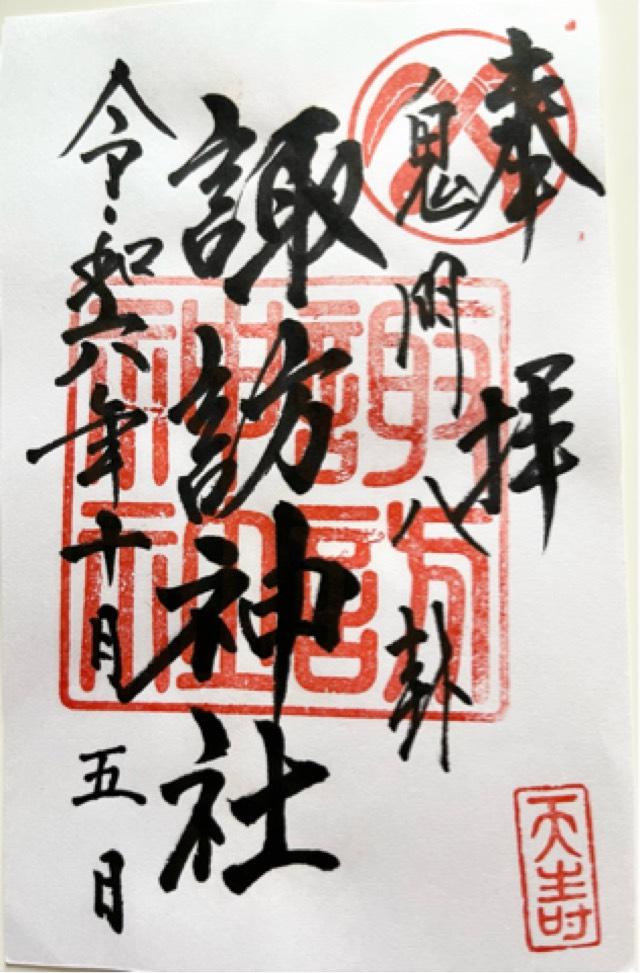 奉拝
鬼門八卦
諏訪神社
令和六年十月五日
諏訪神社
天寿